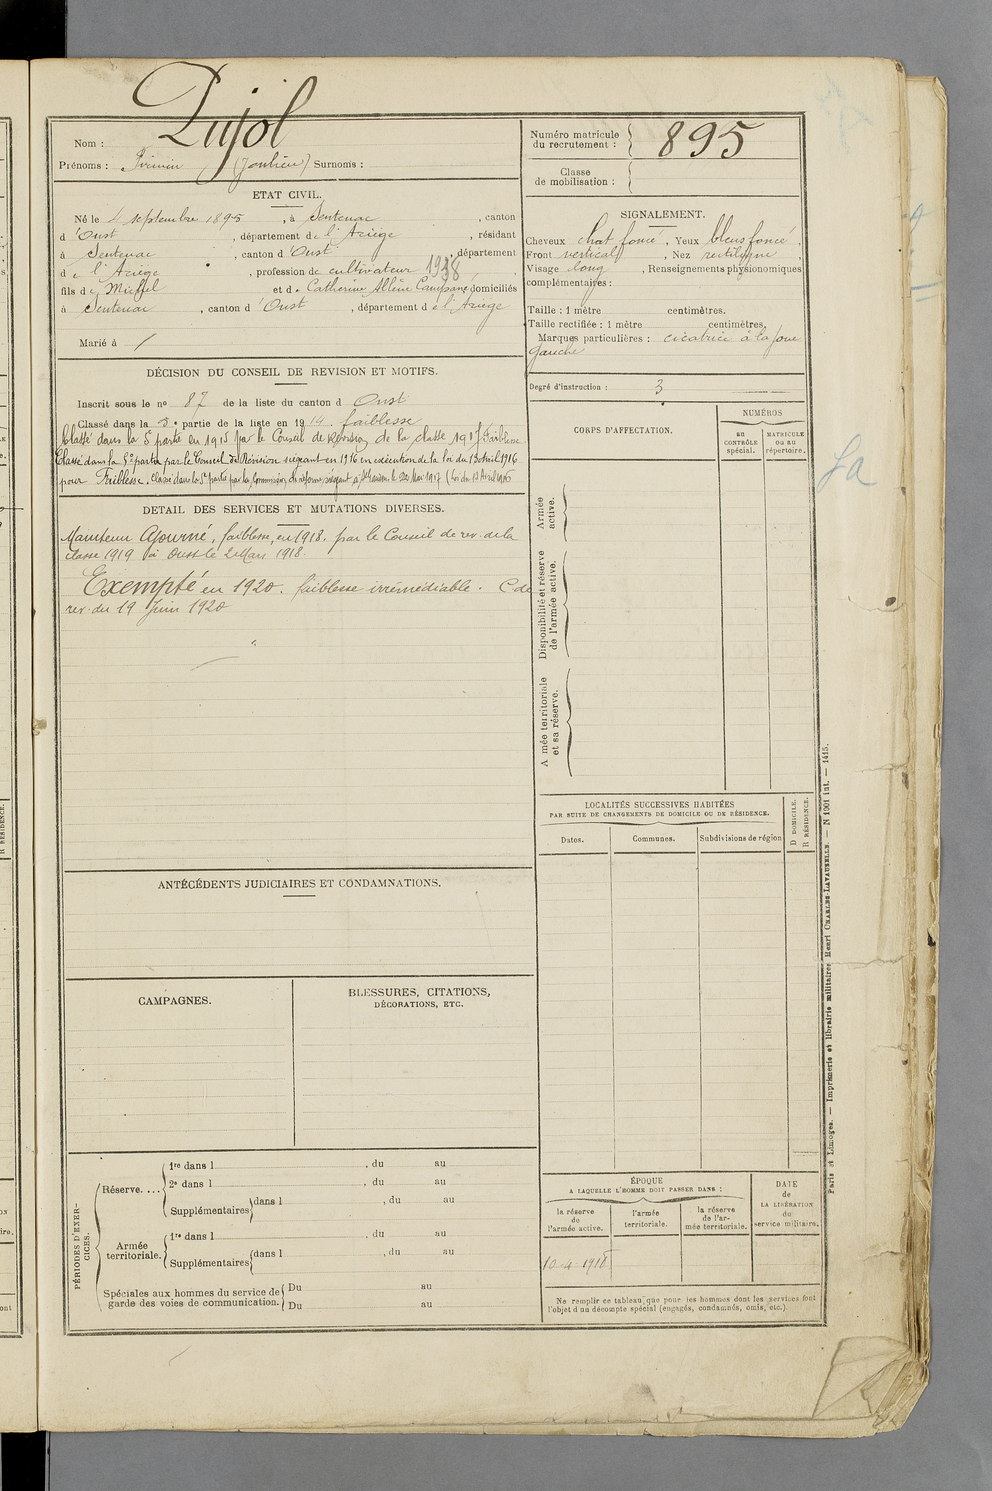 Pujol
Nom :
Prénoms : Firmin (Jonlieu) Surnoms :
ETAT CIVIL.
Né le 4 septembre 1895, à Sentenac, canton
d'Oust, département de l'Ariège, résidant
à Sentenac, canton d'Oust, département
de l'Ariège, profession de cultivateur 1938
fils de Michel et de Catherine domiciliés
à Sentenac, canton d'Oust, département de l'Ariège
Marié à /
DÉCISION DU CONSEIL DE REVISION ET MOTIFS.
Inscrit sous le no 87 de la liste du canton d Oust
Classé dans la 5e partie de la liste en 1914. faiblesse
Classé dans la 5e partie en 1915 par le Conseil de Révision de la classe 1917 Faiblesse
Classé dans la 5e partie par le Conseil de Révision siégeant en 1916 en exécution de la loi du 13 Avril 1916
pour Faiblesse. Classé dans la 5e partie par la Commission de réforme siégeant à le 20 Mai 1917 (Loi du
DETAIL DES SERVICES ET MUTATIONS DIVERSES.
Maintenu Ajourné, faiblesse, en 1918, par le Conseil de rev. de la
classe 1919 à Oust le 2 Mars 1918.
Exempté en 1920. faiblesse irrémédiable. C de
rev. du 19 Juin 1920
ANTÉCÉDENTS JUDICIAIRES ET CONDAMNATIONS.
CAMPAGNES.
BLESSURES, CITATIONS,
DÉCORATIONS, ETC.
PÉRIODES D'EXERCICES.
Réserve. ...
1re dans l , du au
2e dans l , du au
Supplémentaires dans l , du au
Armée
territoriale.
1re dans l , du au
Supplémentaires dans l , du au
Spéciales aux hommes du service de
garde des voies de communication.
Du au
Du au
Numéro matricule
du recrutement : 895
Classe
de mobilisation :
SIGNALEMENT.
Cheveux chat foncé, Yeux bleus foncé,
Front vertical, Nez rectiligne,
Visage long, Renseignements physionomiques
complémentaires :
Taille : 1 mètre centimètres.
Taille rectifiée : 1 mètre centimètres,
Marques particulières : cicatrice à la joue
gauche
Degré d'instruction : 3
CORPS D'AFFECTATION.
NUMÉROS
au
CONTRÔLE
spécial.
MATRICULE
ou au
répertoire.
Armée
active.
Disponibilité et réserve
de l'armée active.
Armée territoriale
et sa réserve.
LOCALITÉS SUCCESSIVES HABITÉES
PAR SUITE DE CHANGEMENTS DE DOMICILE OU DE RÉSIDENCE.
Dates.
Communes.
Subdivisions de région
D DOMICILE.
R RÉSIDENCE.
ÉPOQUE
A LAQUELLE L'HOMME DOIT PASSER DANS :
la réserve
de
l'armée active.
l'armée
territoriale.
la réserve
de l'ar-
mée territoriale.
DATE
de
LA LIBÉRATION
du
service militaire.
10-4-1918
Ne remplir ce tableau que pour les hommes dont les services font
l'objet d'un décompte spécial (engagés, condamnés, omis, etc.).
Paris et Limoges. — Imprimerie et librairie militaires Henri CHARLES-LAVAUZELLE. — N 1001 int. — 1415.